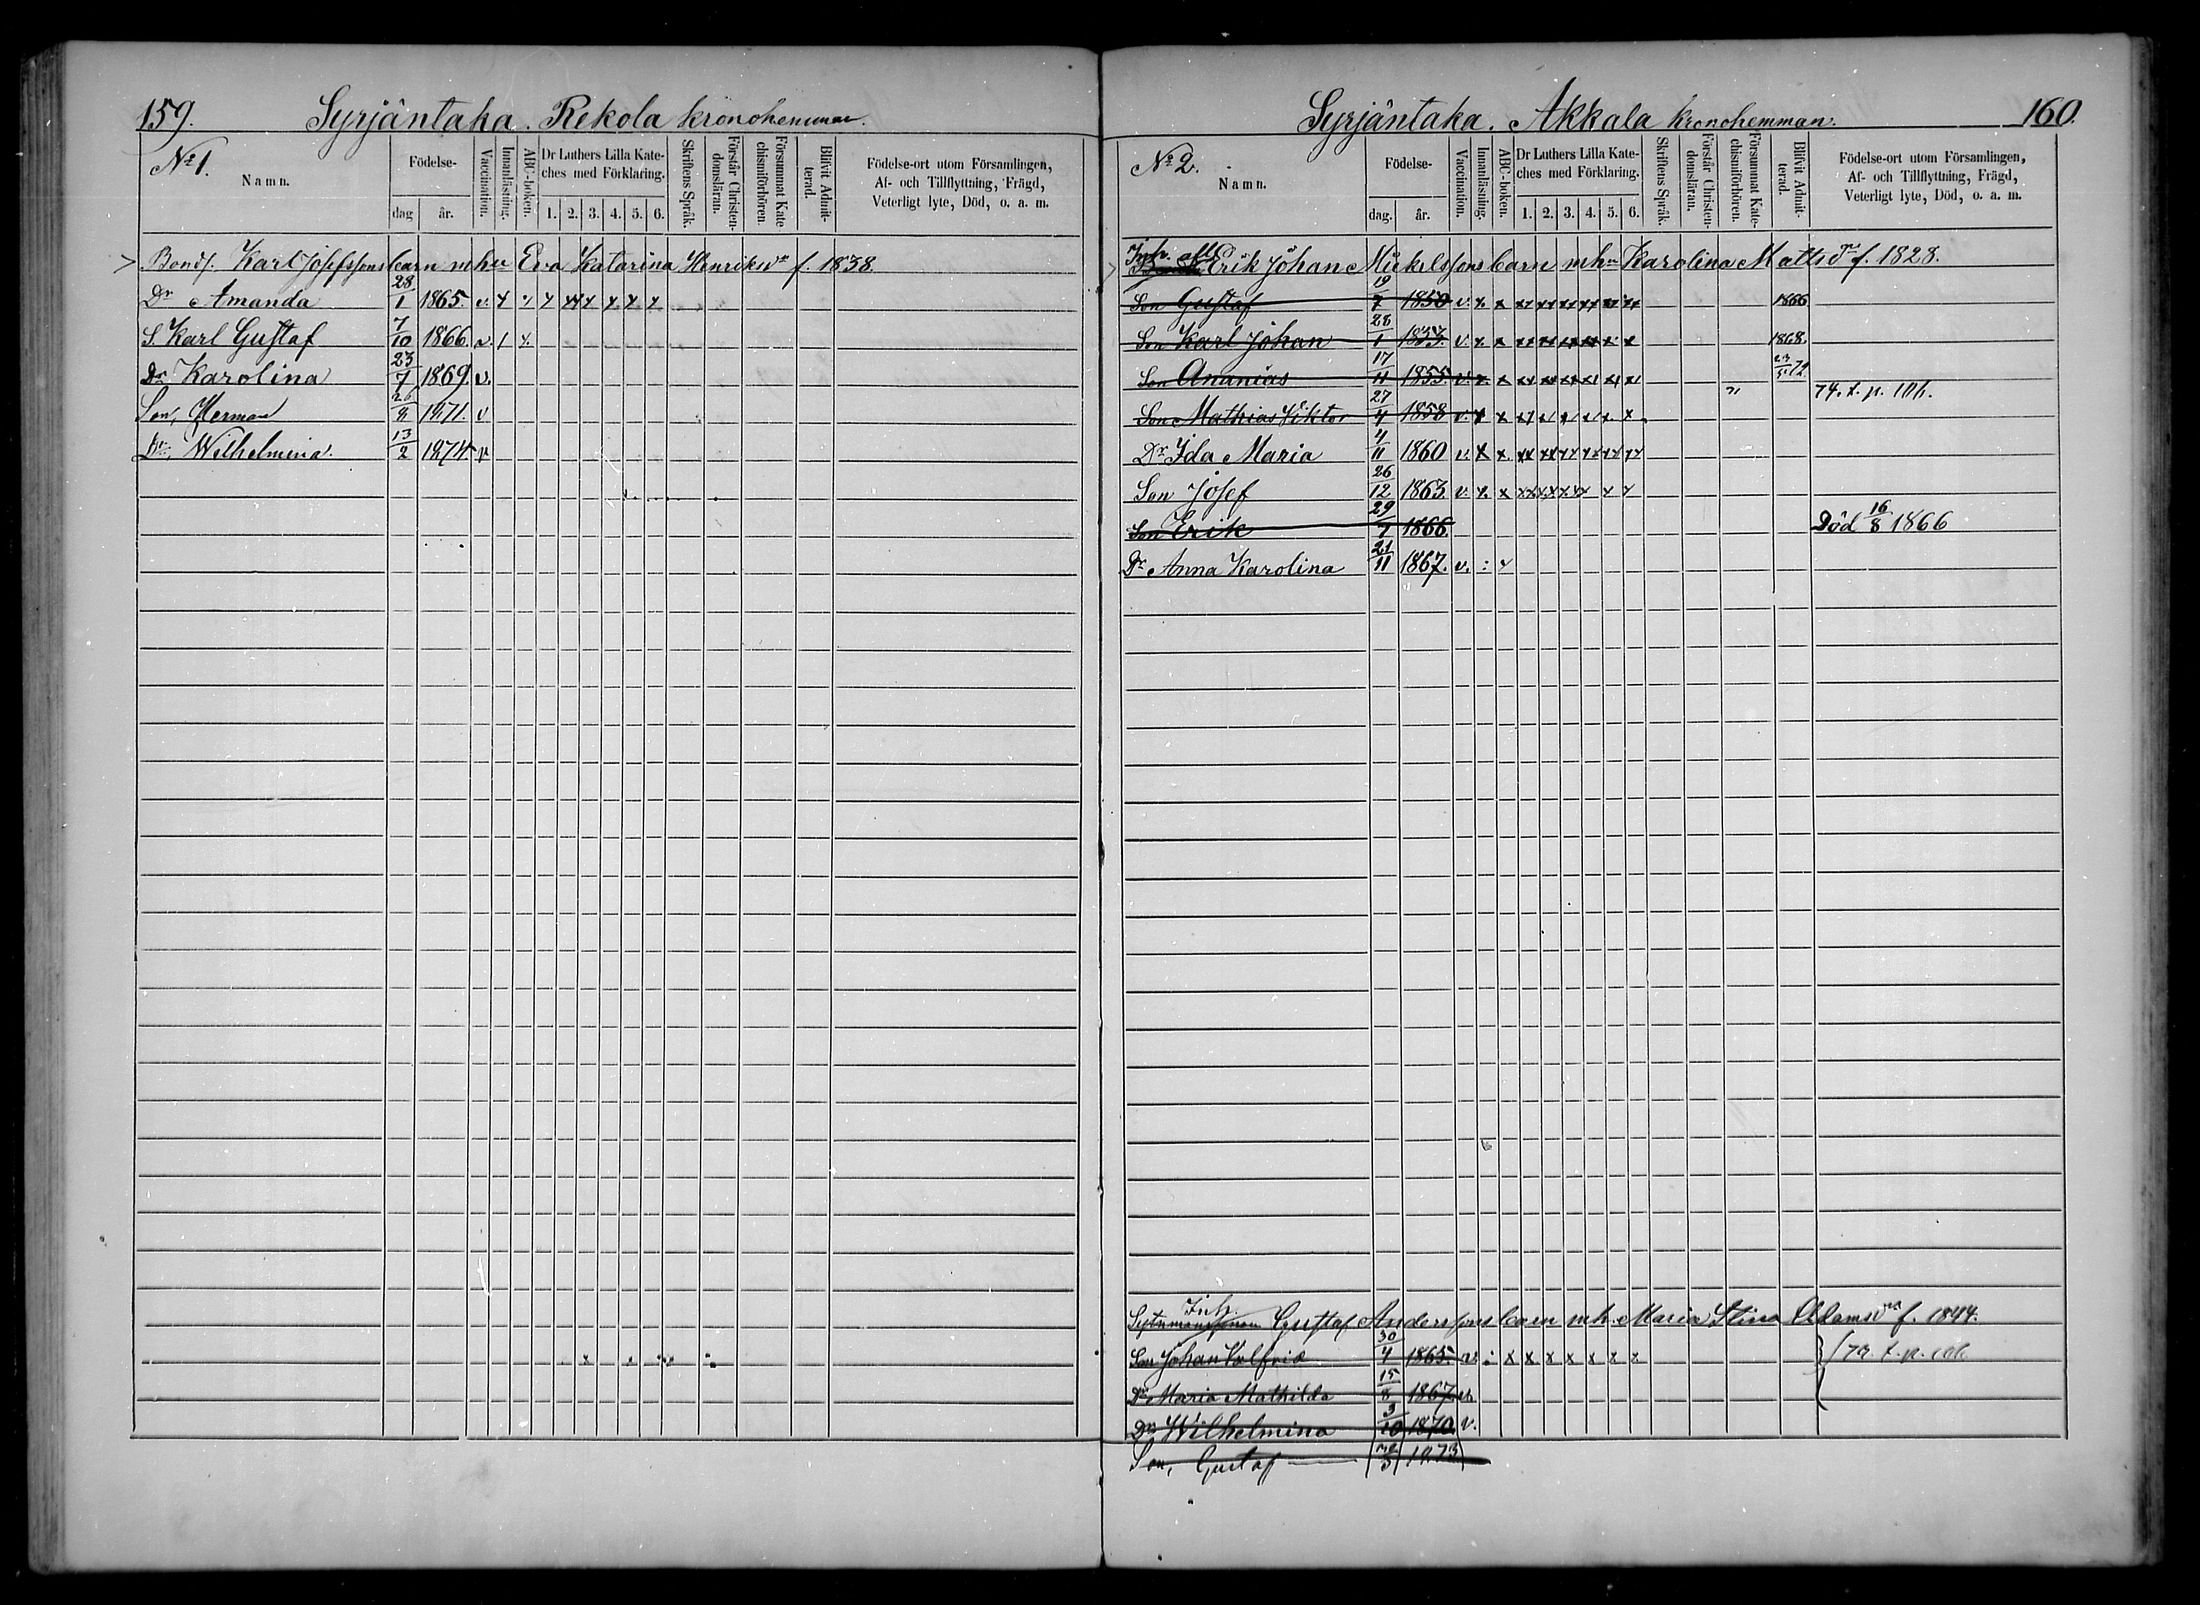 159. Syrjäntaka. Rekola kronohemman.
No 1.
Namn.
Födelse-
dag år.
Vaccination.
Innanläsning.
ABC-boken.
Dr Luthers Lilla Kate-
ches med Förklaring.
1. 2. 3. 4. 5. 6.
Skriftens Språk.
Förstår Christen-
domsläran.
Försummat Kate
chismiförhören.
Blifvit Admit-
terad.
Födelse-ort utom Församlingen,
Af- och Tillflyttning, Frägd,
Veterligt lyte, Död, o. a. m.
Bond. Karl Josefssons barn m hu Eva Katarina Henriksdr f. 1838.
Dr Amanda 28/1 1865. v.
S. Karl Gustaf 7/10 1866. v.
Dr Karolina 23/7 1869. v.
Son, Herman 26/9 1871. v
Dr, Wilhelmina. 13/2 1874. v
Syrjäntaka. Akkala kronohemman. 160.
No 2.
Namn.
Födelse-
dag. år.
Vaccination.
Innanläsning.
ABC-boken.
Dr Luthers Lilla Kate-
ches med Förklaring.
1. 2. 3. 4. 5. 6.
Skriftens Språk.
Förstår Christen-
domsläran.
Försummat Kate-
chismiförhören.
Blifvit Admit-
terad.
Födelse-ort utom Församlingen,
Af- och Tillflyttning, Frägd,
Veterligt lyte, Död, o. a. m.
Erik Johan Mickelssons barn m hu Karolina Matts dr f. 1828.
Son Gustaf 19/7 1850 v. x x xx xx xx xx xx xx 1866
Son Karl Johan 28/1 1853. v. x x xx xx xx xx x x 1868.
Son Ananias 17/11 1855. v. x. xx xx xx xx xx x 72
Son Mathias Viktor 27/4 1858 v. x x 74. t. p. 101.
Dr Ida Maria 4/11 1860 v. x x. xx xx xx xx xx xx
Son Josef 26/12 1863 v. x. x xx xx xx xx x x
Son Erik 29/7 1866. Död 16/8 1866
Dr Anna Karolina 21/11 1867. v.
Inh.
Gustaf Anderssons barn m h. Maria Stina Adamsdr f. 1844.
Son Johan Valfrid 30/4 1865. v. x x x x x x x
Dr Maria Mathilda 15/8 1867. v.
Dr Wilhelmina 3/10 1870. v.
Son, Gustaf 1873